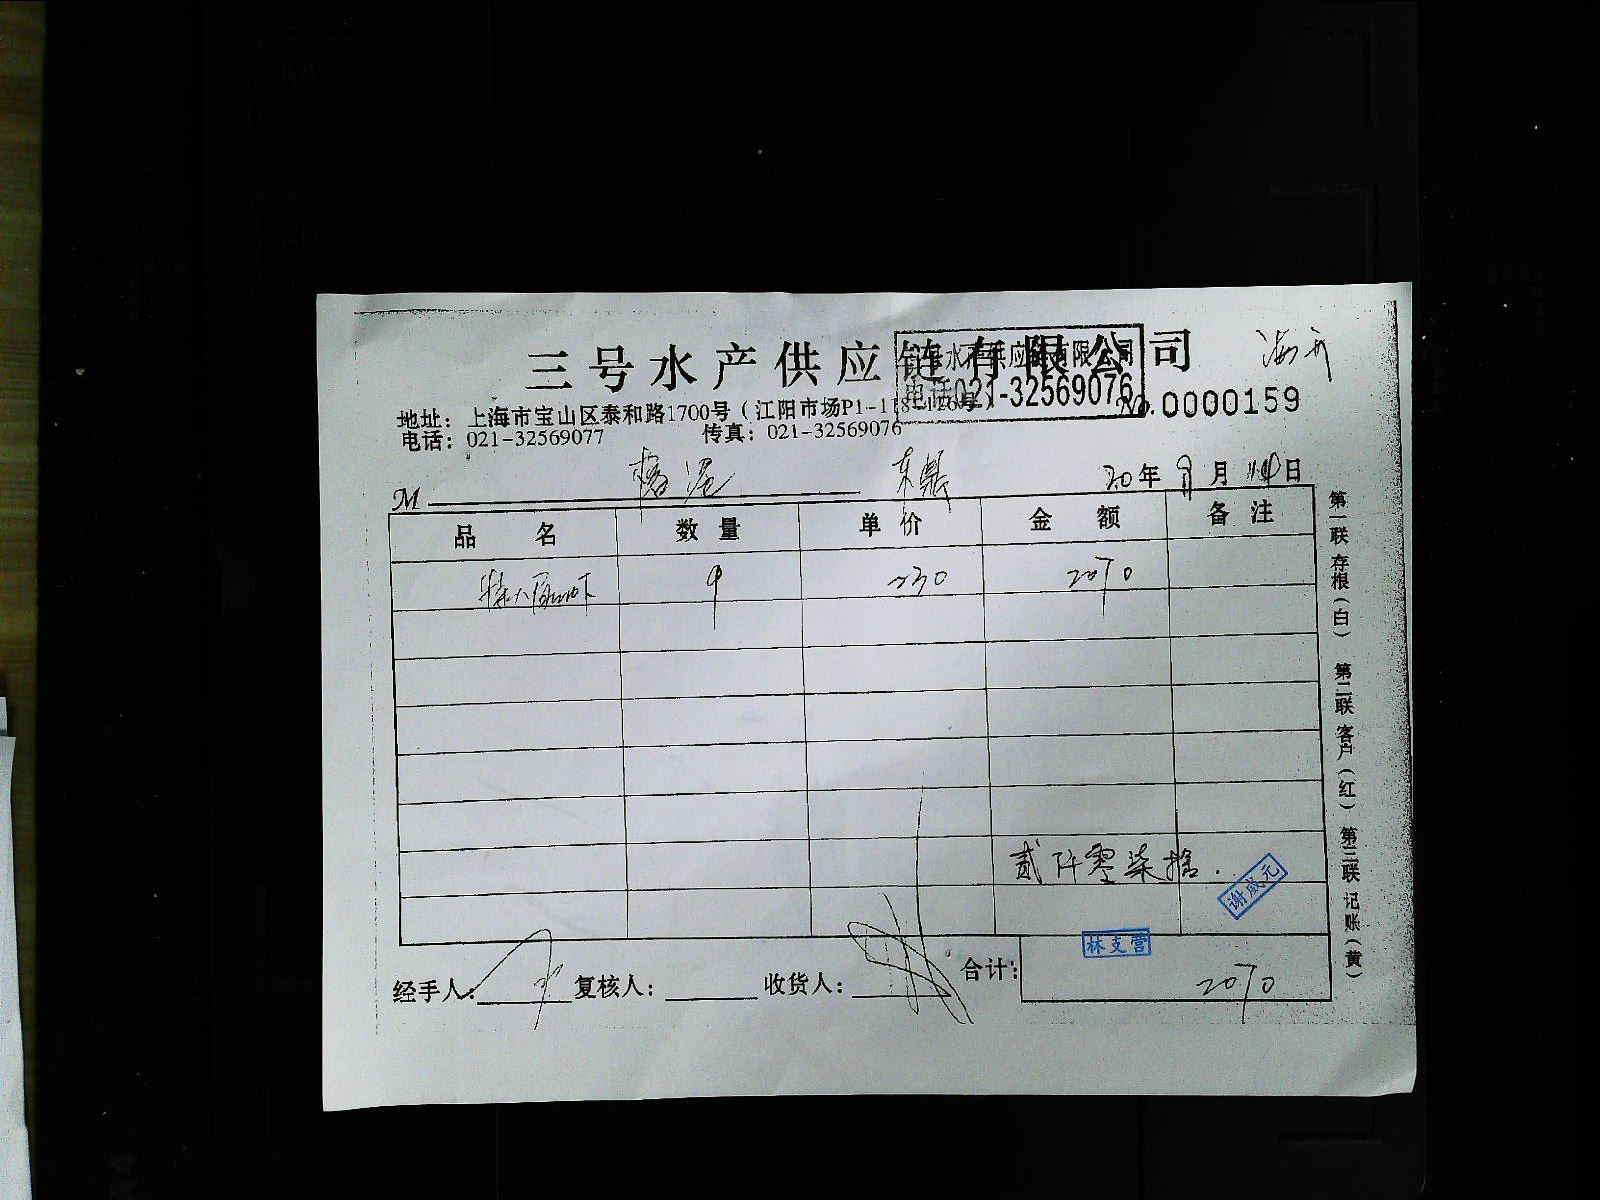 三号水产供应链有限公司
电话021-32569076
No.0000159
地址：上海市宝山区泰和路1700号（江阳市场P1-118-120号）
电话：021-32569077 传真：021-32569076
M 东鼎 20年9月 日
品名 数量 单价 金额 备注
特大 9 230 2070
贰仟零柒拾.
谢威元
林支营
经手人： 复核人： 收货人： 合计： 2070
第一联 存根（白） 第二联 客户（红） 第三联 记账（黄）